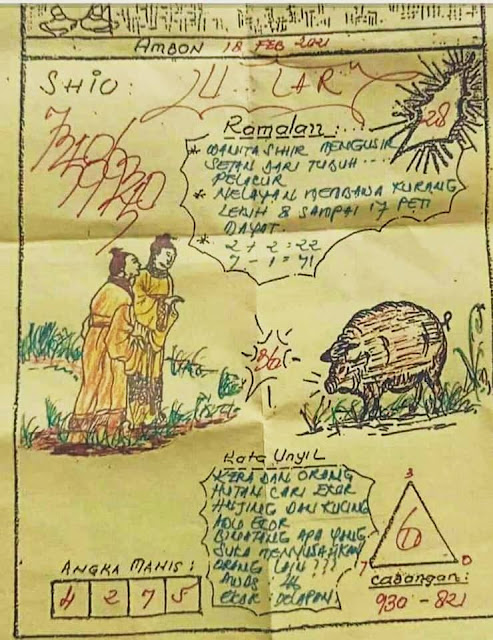 AMBON 18 FEB 2021
SHIO: U LAR
28
Ramalan:
* WANITA SIHIR MENGUSIR
SETAN DARI TUBUH....
PELACUR
* NELAYAN MEMBAWA KURANG
LEBIH 8 SAMPAI 17 PETI
MAYAT.
* 2 + 2 = 22
7 - 1 = 71
86
Kata Unyil
KERA DAN ORANG
HUTAN CARI EKOR
ANJING DAN KUCING
ADU EKOR
BINATANG APA YANG
SUKA MENYUSAHKAN
ORANG LAIN ???
AWAS: 46
EKOR: DELAPAN
3
6
7 0
ANGKA MANIS:
4 2 7 5
Cabangan:
930 - 821